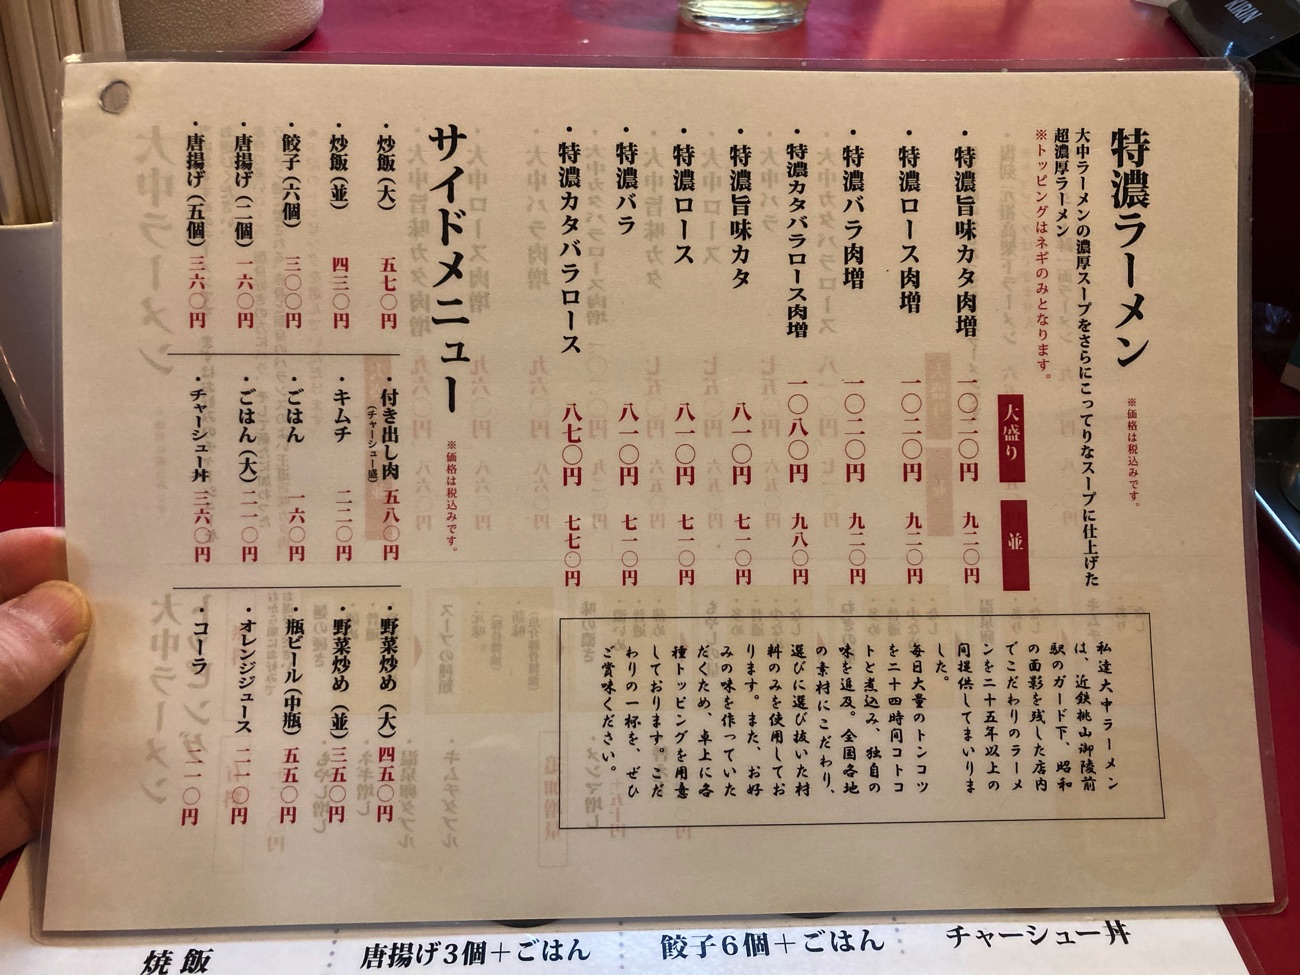 特濃ラーメン
※価格は税込みです。
大中ラーメンの濃厚スープをさらにこってりなスープに仕上げた
超濃厚ラーメン
※トッピングはネギのみとなります。
大盛り
並
・特濃旨味カタ肉増 一〇二〇円 九二〇円
・特濃ロース肉増 一〇二〇円 九二〇円
・特濃バラ肉増 一〇二〇円 九二〇円
・特濃カタバラロース肉増 一〇八〇円 九八〇円
・特濃旨味カタ 八一〇円 七一〇円
・特濃ロース 八一〇円 七一〇円
・特濃バラ 八一〇円 七一〇円
・特濃カタバラロース 八七〇円 七七〇円
私達大中ラーメン
は、近鉄桃山御陵前
駅のガード下、昭和
の面影を残した店内
でこだわりのラーメ
ンを二十五年以上の
間提供してまいりま
した。
毎日大量のトンコツ
を二十四時間コトコ
トと煮込み、独自の
味を追及。全国各地
の素材にこだわり、
選びに選び抜いた材
料のみを使用してお
ります。また、お好
みの味を作っていた
だくため、卓上に各
種トッピングを用意
しております。こだ
わりの一杯を、ぜひ
ご賞味ください。
サイドメニュー
※価格は税込みです。
・炒飯（大） 五七〇円
・炒飯（並） 四三〇円
・餃子（六個） 三〇〇円
・唐揚げ（二個） 一六〇円
・唐揚げ（五個） 三六〇円
・付き出し肉 五八〇円
（チャーシュー盛）
・キムチ 二二〇円
・ごはん 一六〇円
・ごはん（大） 二一〇円
・チャーシュー丼 三六〇円
・野菜炒め（大） 四五〇円
・野菜炒め（並） 三五〇円
・瓶ビール（中瓶） 五五〇円
・オレンジジュース 二一〇円
・コーラ 二一〇円
焼飯
唐揚げ3個＋ごはん
餃子6個＋ごはん
チャーシュー丼
KIRIN